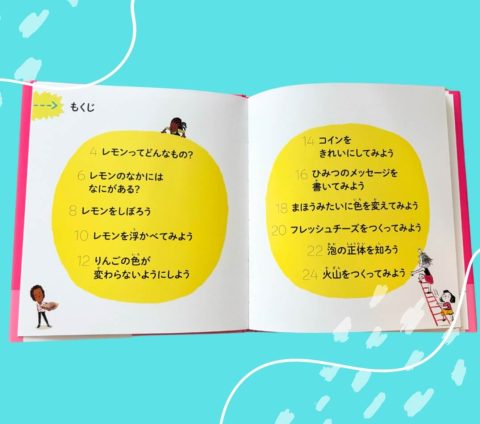 もくじ
4 レモンってどんなもの?
6 レモンのなかには
なにがある?
8 レモンをしぼろう
10 レモンを浮かべてみよう
12 りんごの色が
変わらないようにしよう
14 コインを
きれいにしてみよう
16 ひみつのメッセージを
書いてみよう
18 まほうみたいに色を変えてみよう
20 フレッシュチーズをつくってみよう
22 泡の正体を知ろう
24 火山をつくってみよう